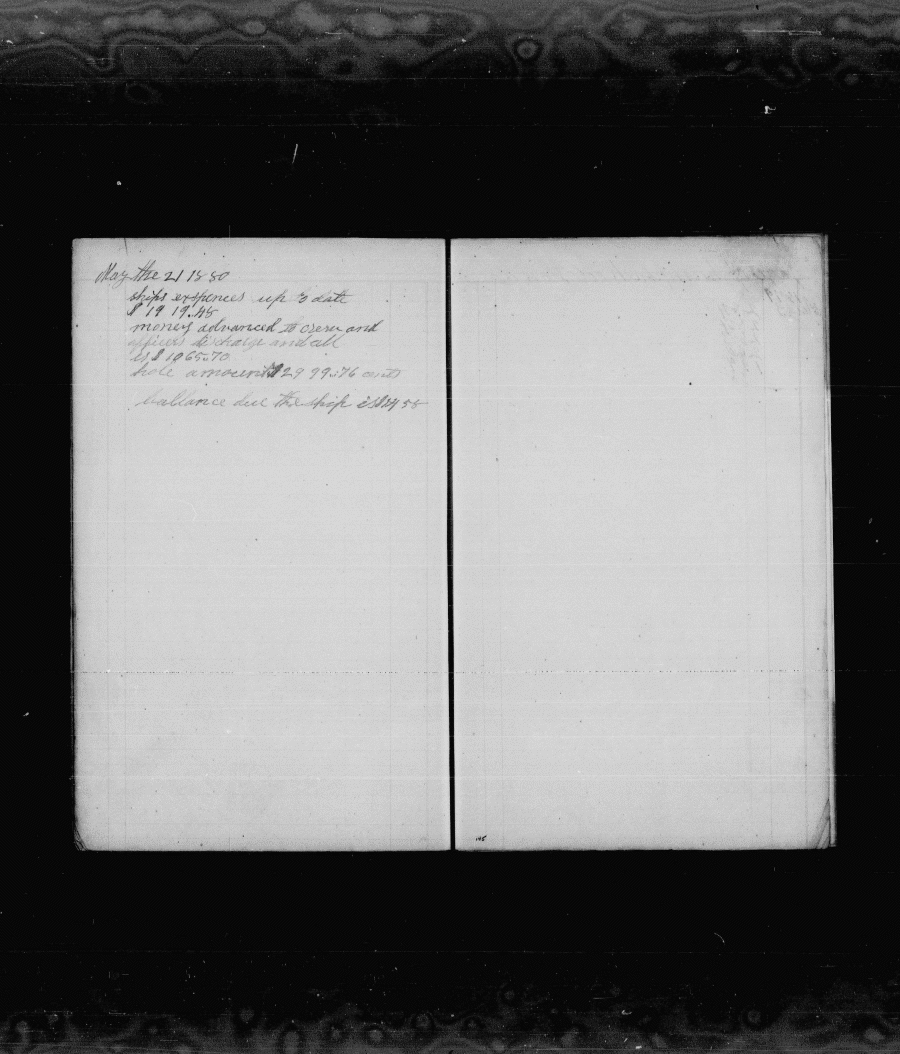 May the 21 1880
ships exspences up to date
$ 19 19.48
money advanced to crew and
officers discharge and all
is $ 1065.70
hole amount $29 99.76 cents
ballance due the ship is $24 55